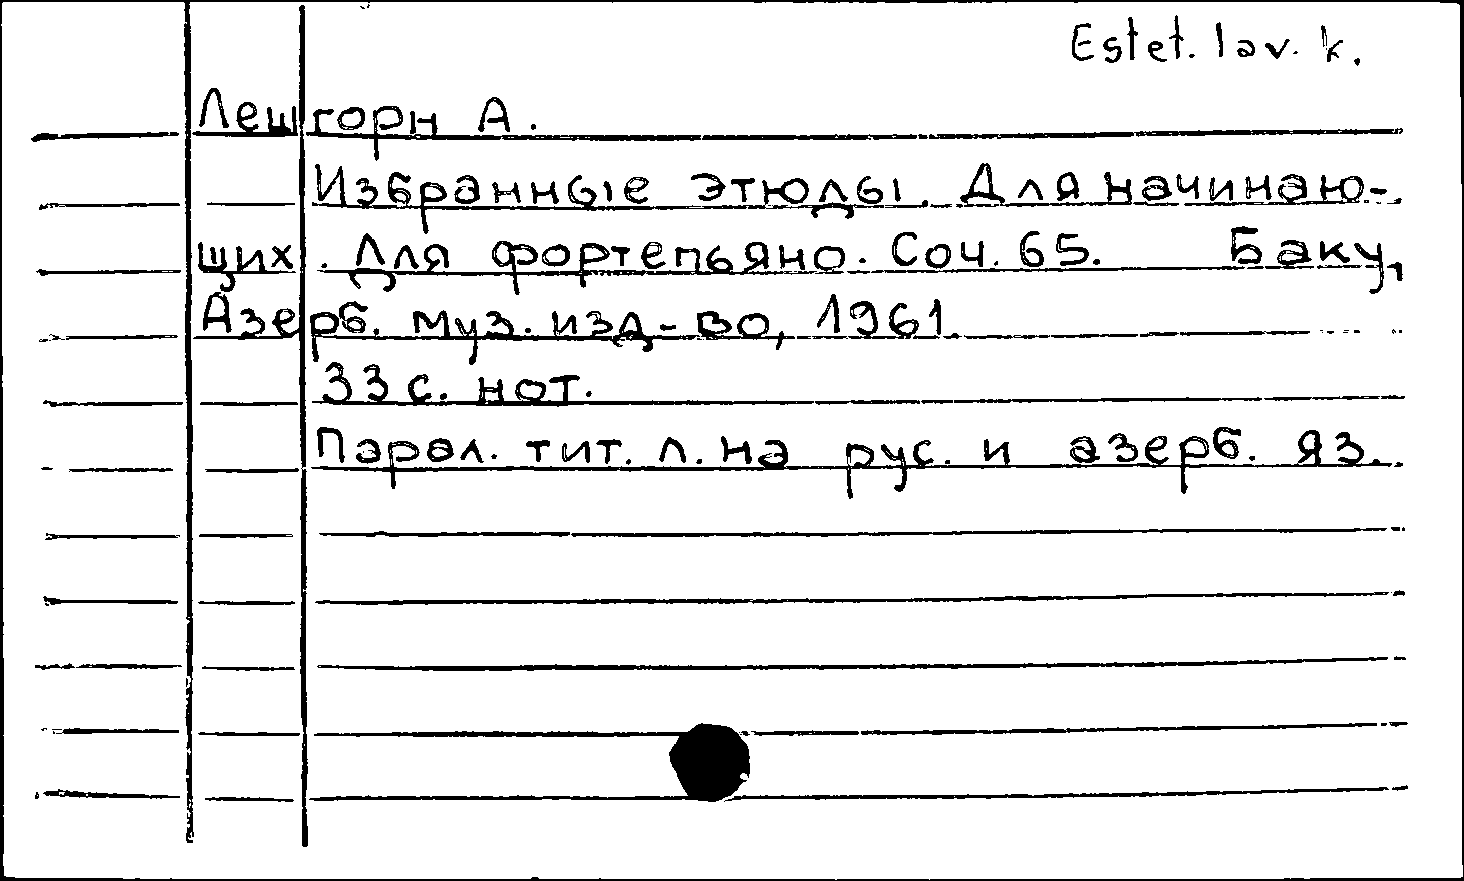 Estet. lav. k.
Лешгорн А.
Избранные этюды. Для начинаю-
щих. Для фортепьяно. Соч. 65. Баку,
Азерб. муз. изд-во, 1961.
33 с. нот.
Парал. тит. л. на рус. и азерб. яз.